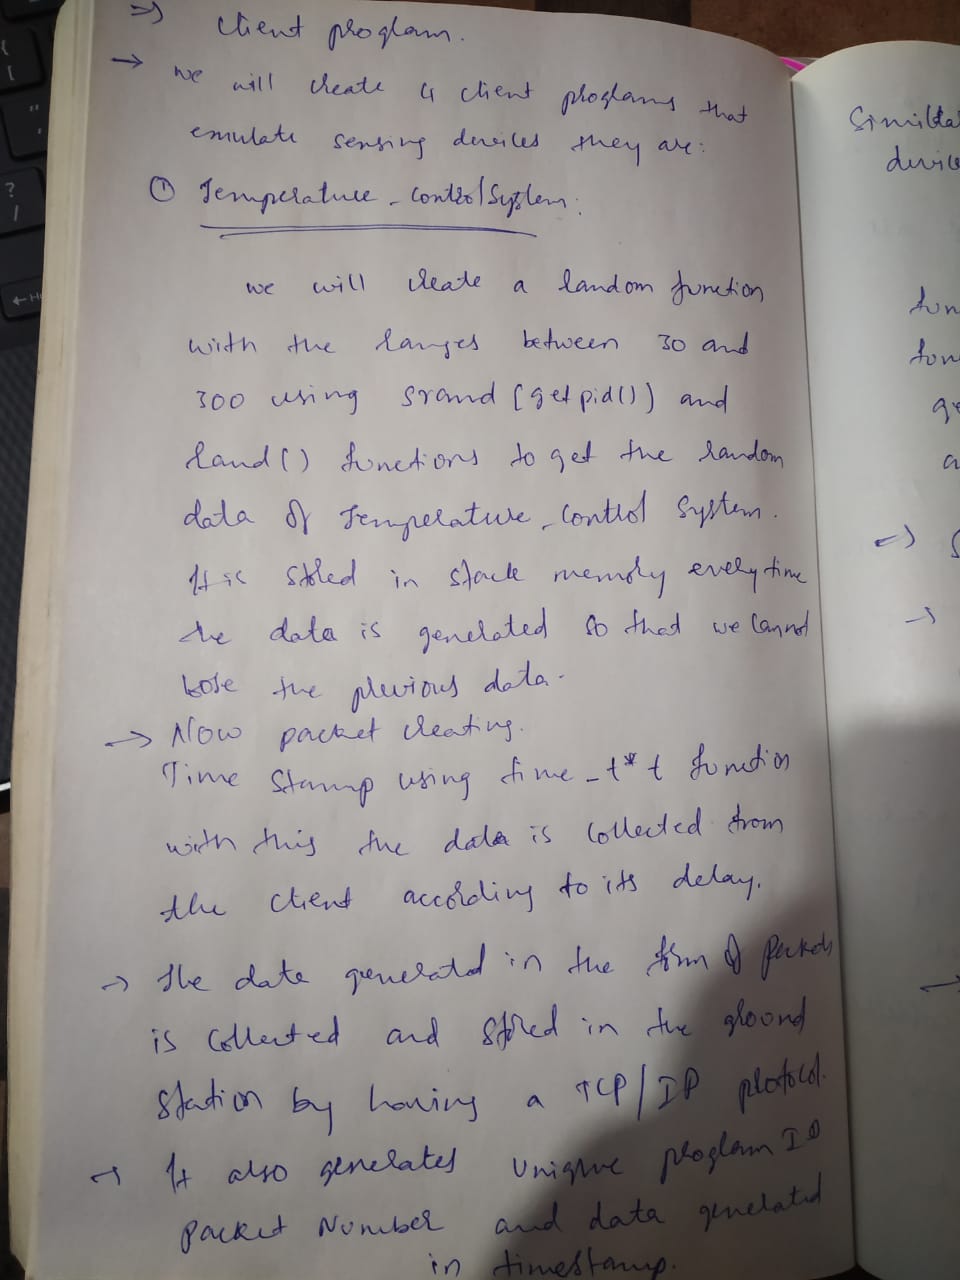 => Client program.
-> we will create 4 client programs that
emulate sensing devices they are:
① Temperature-controlSystem:
we will create a random function
with the ranges between 30 and
300 using srand (getpid()) and
rand() functions to get the random
data of Temperature-control System.
It is stored in stack memory everytime
the data is generated so that we cannot
lose the previous data.
-> Now packet creating.
Time Stamp using time-t*t function
with this the data is collected from
the client according to its delay.
-> The data generated in the form of packets
is collected and stored in the ground
station by having a TCP/IP protocol.
-> It also generates unique program ID
packet Number and data generated
in timestamp.
devic
fun
ge
a
=>
->